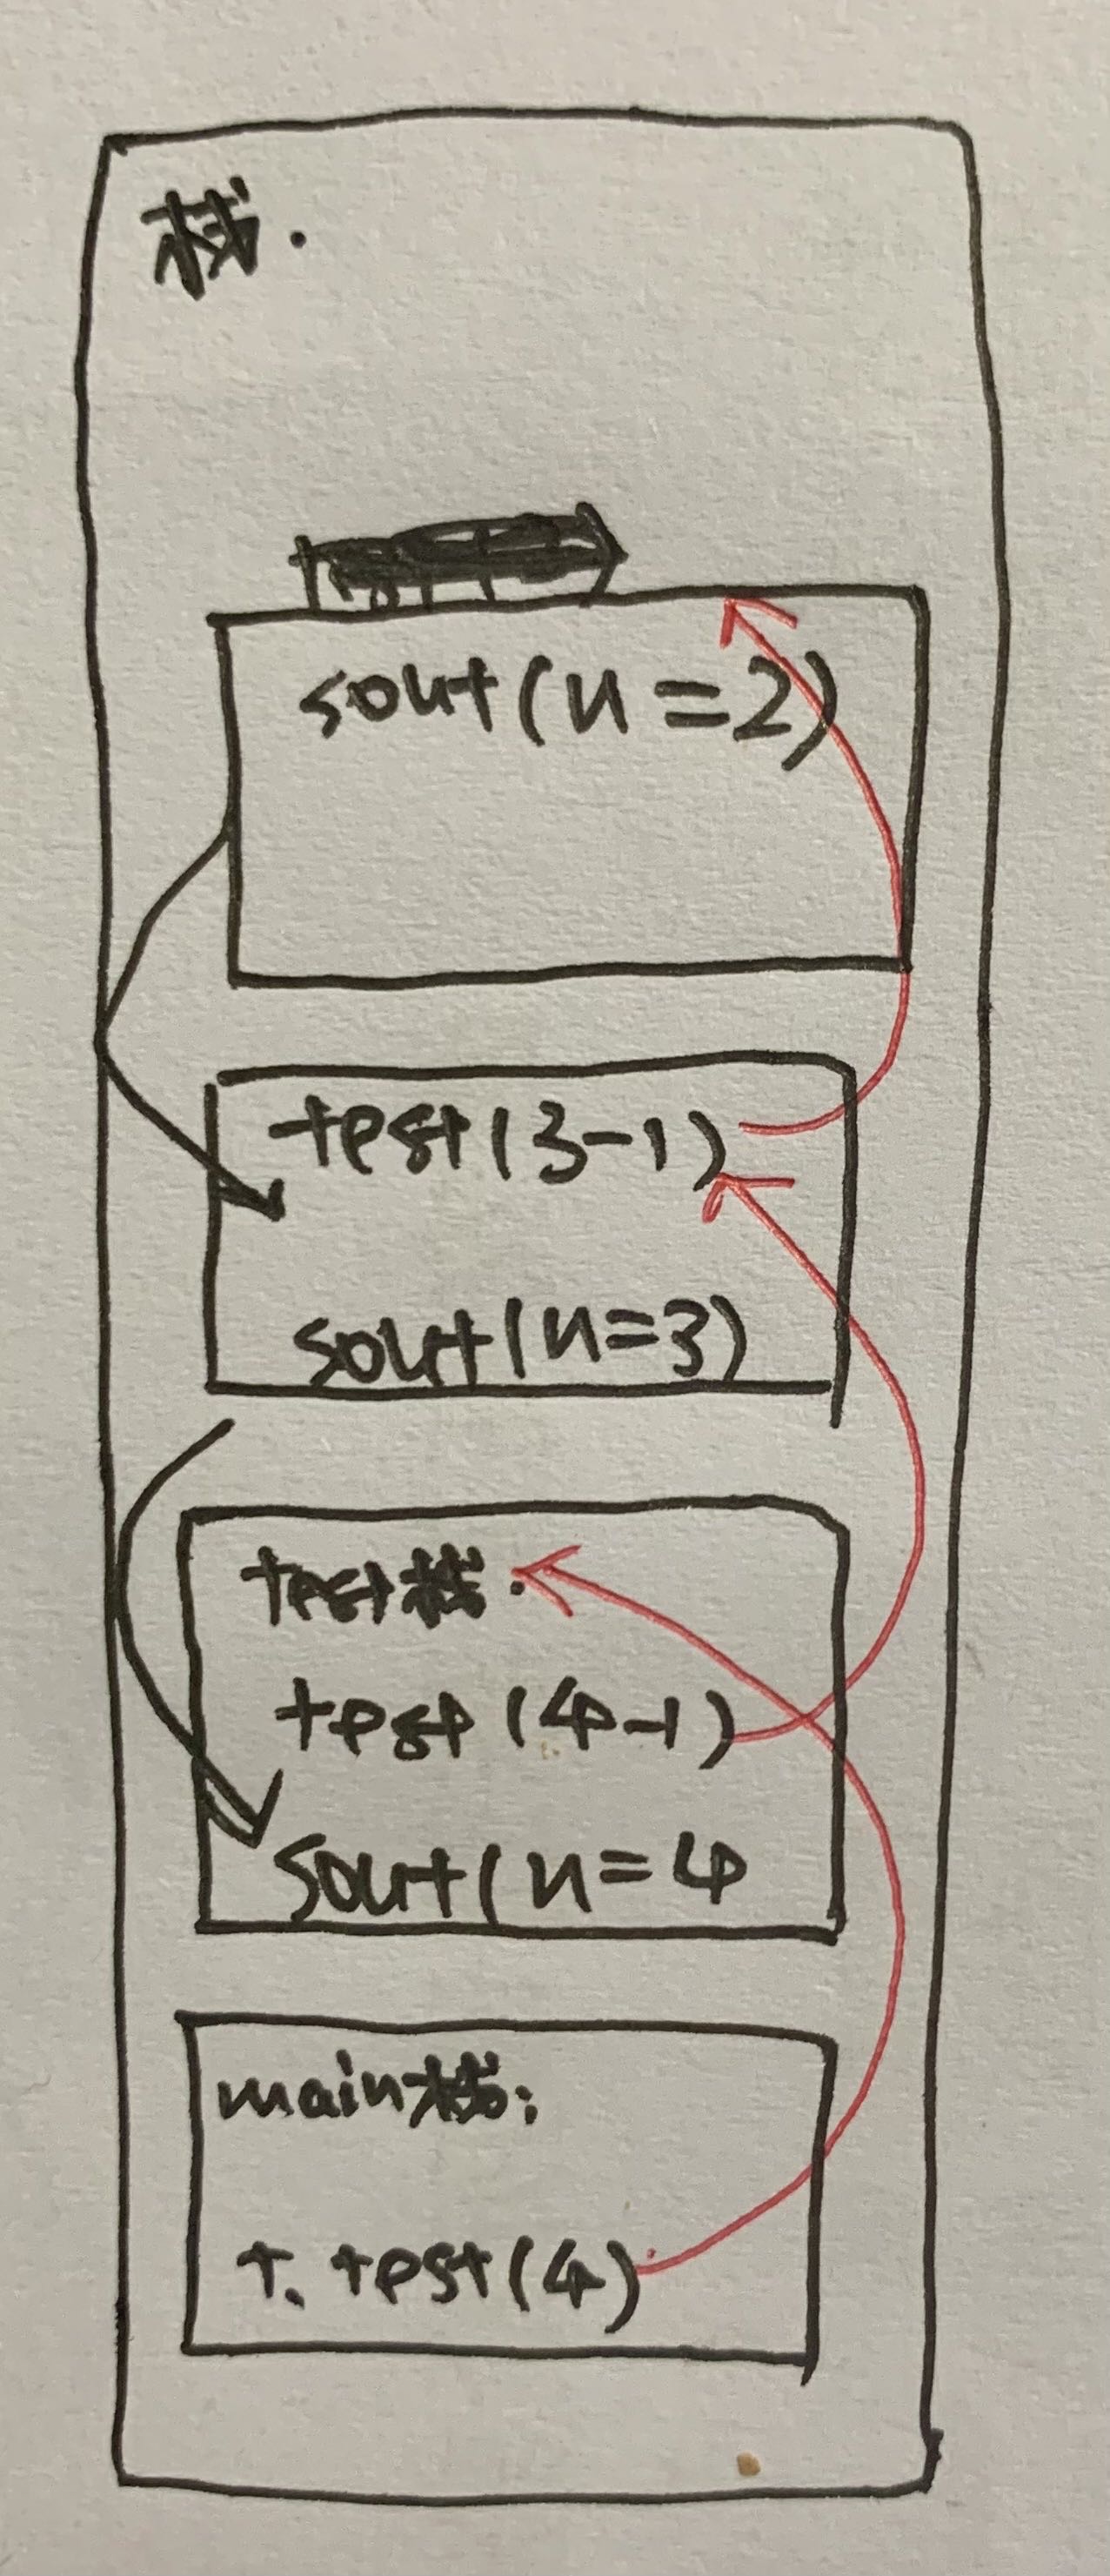 栈.
sout(n=2)
test(3-1)
sout(n=3)
test栈.
test(4-1)
sout(n=4
main栈:
t. test(4)